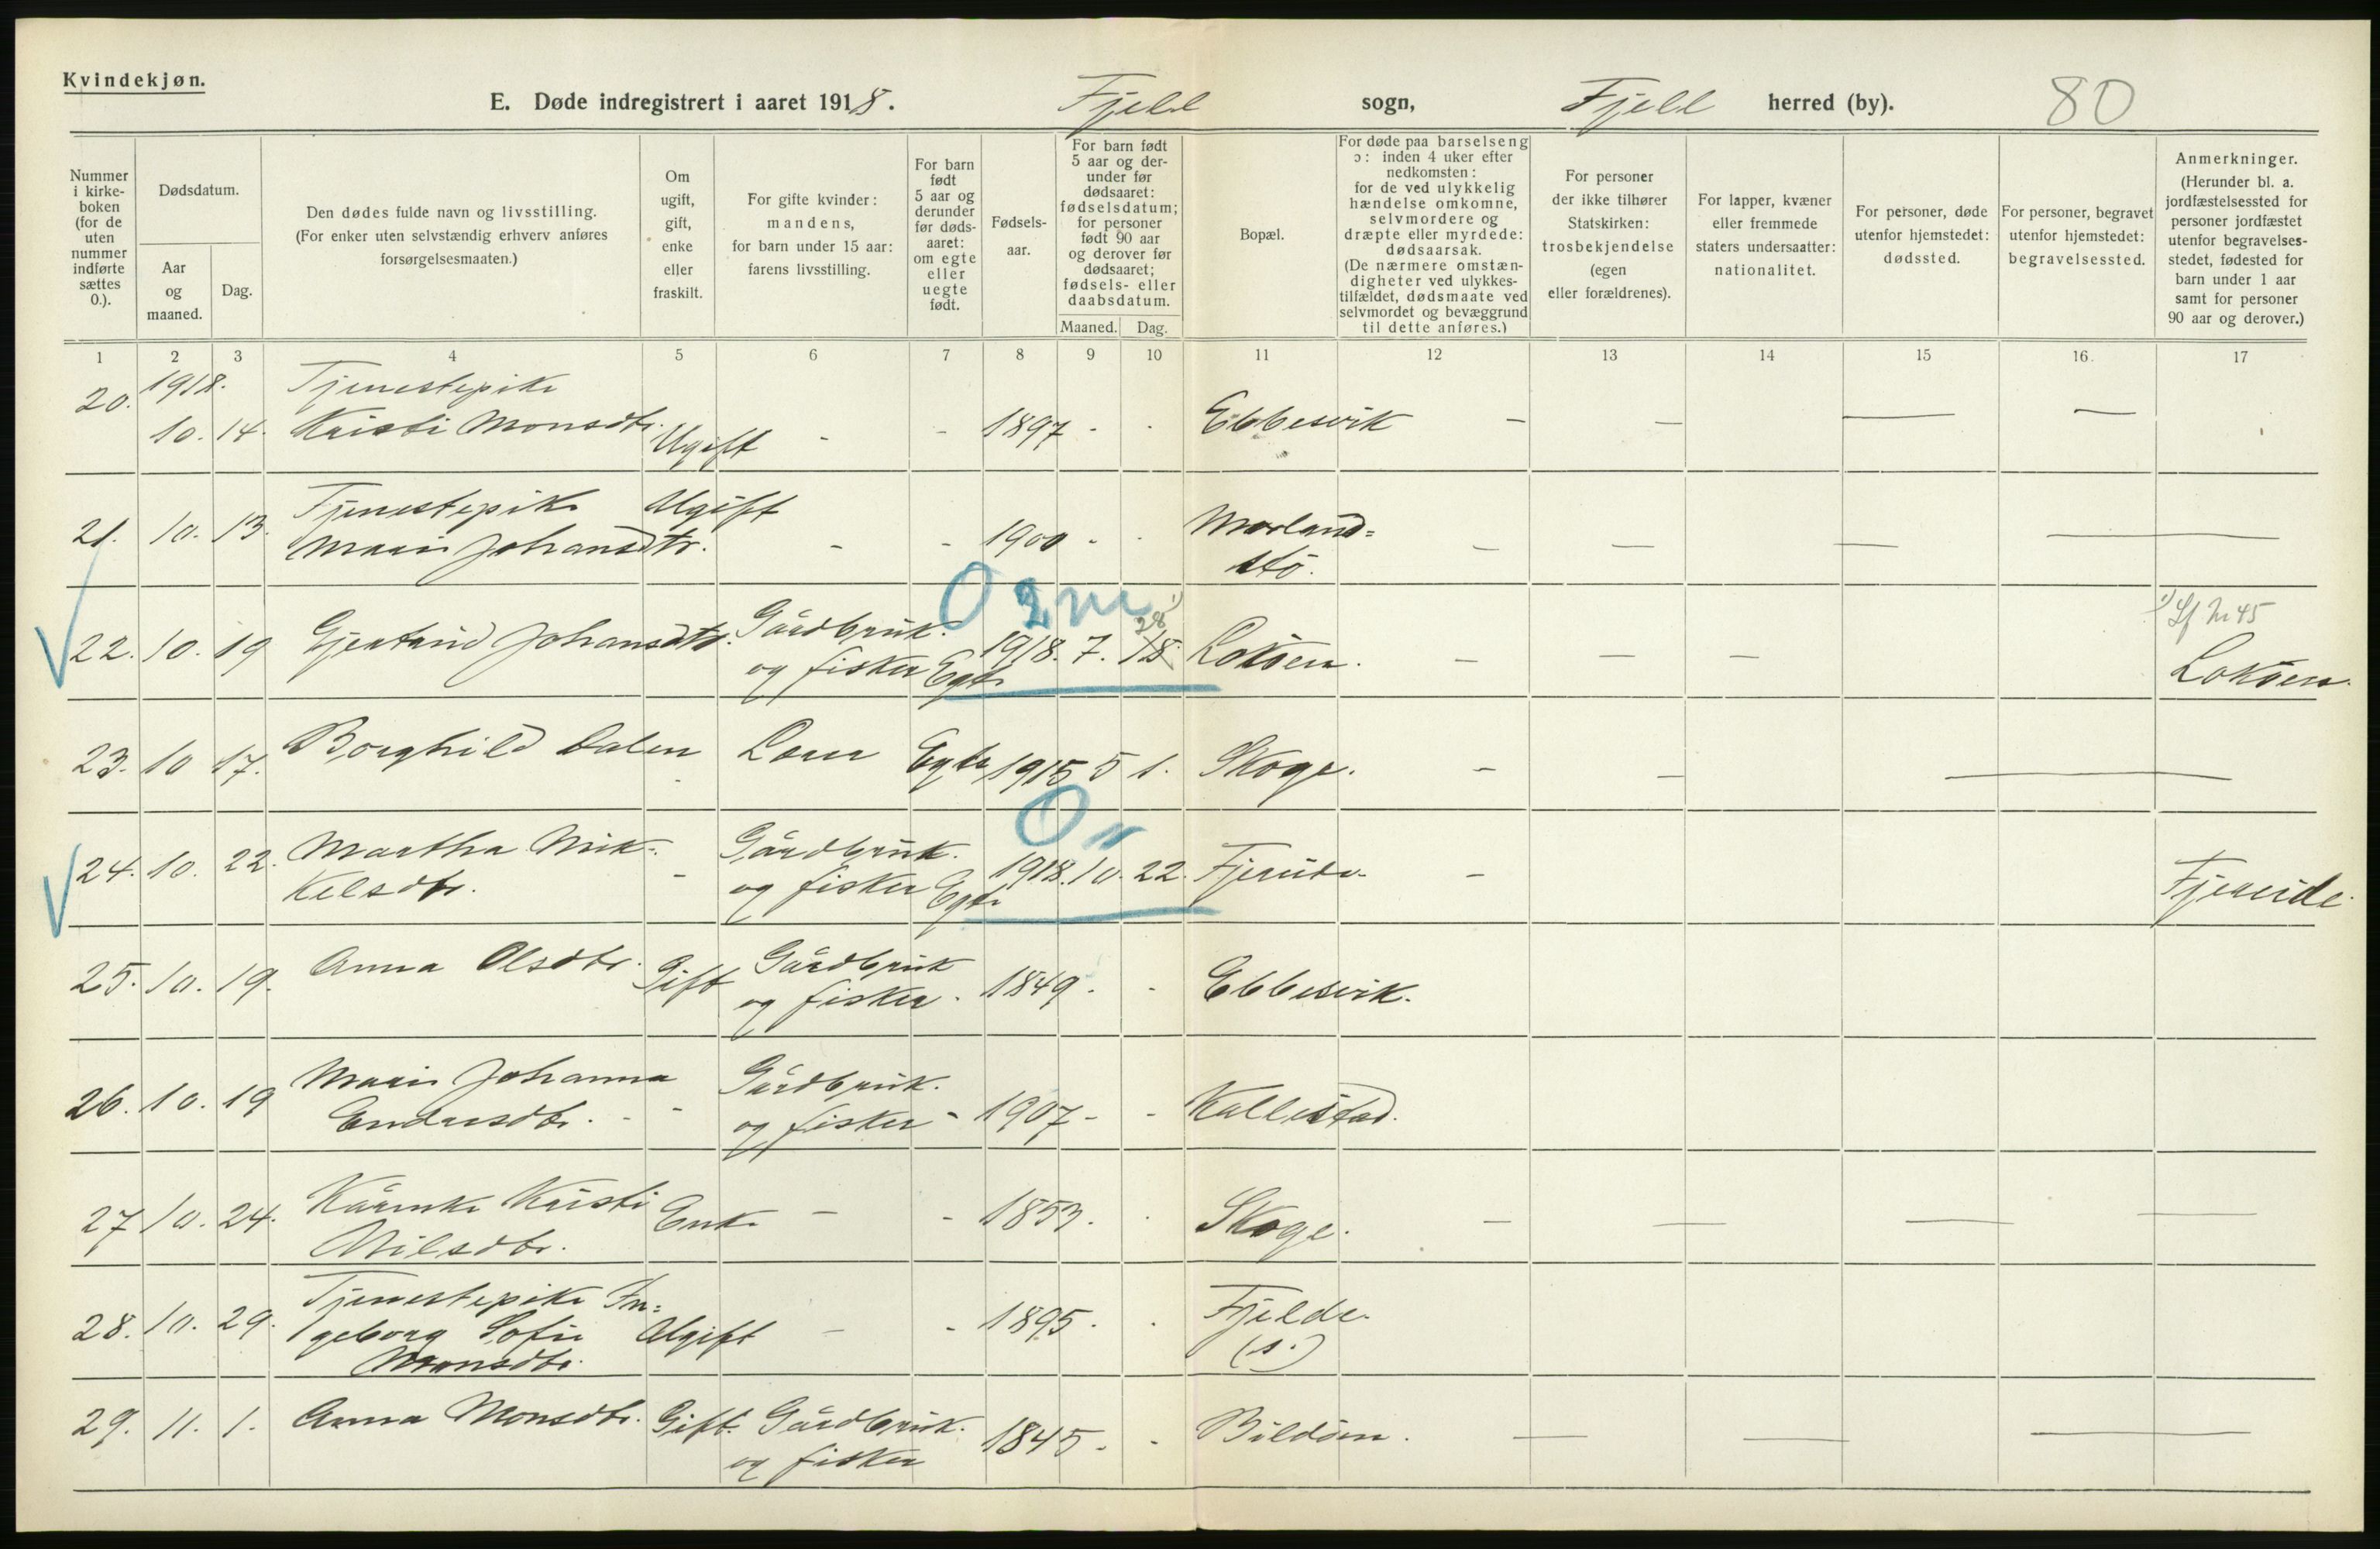 Kvindekjøn.
E. Døde indregistrert i aaret 1918. Fjell sogn, Fjell herred (by). 80
Nummer i kirkeboken (for de uten nummer indførte sættes 0.).
Dødsdatum.
Aar og maaned.
Dag.
Den dødes fulde navn og livsstilling.
(For enker uten selvstændig erhverv anføres forsørgelsesmaaten.)
Om ugift, gift, enke eller fraskilt.
For gifte kvinder: mandens, for barn under 15 aar: farens livsstilling.
For barn født 5 aar og derunder før dødsaaret: om egte eller uegte født.
Fødselsaar.
For barn født 5 aar og derunder før dødsaaret: fødselsdatum; for personer født 90 aar og derover før dødsaaret; fødsels- eller daabsdatum.
Maaned. Dag.
Bopæl.
For døde paa barselseng ɔ: inden 4 uker efter nedkomsten: for de ved ulykkelig hændelse omkomne, selvmordere og dræpte eller myrdede: dødsaarsak. (De nærmere omstændigheter ved ulykkestilfældet, dødsmaate ved selvmordet og bevæggrund til dette anføres.)
For personer der ikke tilhører Statskirken: trosbekjendelse (egen eller forældrenes).
For lapper, kvæner eller fremmede staters undersaatter: nationalitet.
For personer, døde utenfor hjemstedet: dødssted.
For personer, begravet utenfor hjemstedet: begravelsessted.
Anmerkninger. (Herunder bl. a. jordfæstelsessted for personer jordfæstet utenfor begravelsesstedet, fødested for barn under 1 aar samt for personer 90 aar og derover.)
1 2 3 4 5 6 7 8 9 10 11 12 13 14 15 16. 17
1918.
20. 10. 14. Tjenestepike
Kristi Monsdtr. Ugift - - 1897 - - Ebbesvik - - - -
21. 10. 13. Tjenestepike Ugift
Mari Johansdtr. - - 1900 - - Morland=
stö. - - - -
0 2 m
22. 10. 19 Gjertrud Johansdtr. Gårdbruk.
og fisker Egte 1918. 7. 18. 28 1) Loköen. - - - 1) Nr 45
Loköen.
23. 10 17. Borghild Dalen - Egte 1915 5 1. Skoge. - - -
0 "
24. 10. 22. Martha Mik-
kelsdtr. - Gårdbruk.
og fisker Egte 1918. 10. 22. Fjereide - Fjereide
25. 10. 19. Anna Olsdtr. Gift Gårdbruk
og fisker - 1849 - - Ebbesvik.
26. 10. 19 Mari Johanna
Endresdtr. - - Gårdbruk.
og fisker - 1907 - - Kallestad.
27 10. 24. Kårmke Kristi
Nilsdtr. Enke - - 1853. - Skoge. - - - -
28. 10. 29. Tjenestepike In=
geborg Sofie Ugift - - 1895 - - Fjelde.
Monsdtr. (s.)
29. 11. 1. Anna Monsdtr. Gift. Gårdbruk.
og fisker 1845 - - Bildöen. - - -